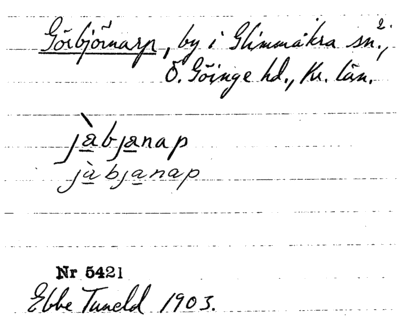 Görbjörnarp, by i Glimmåkra sn.,
Ö. Göinge hd., Kr. län.
jàbjanap
jàbjanap
Nr 5421
Ebbe Tuneld 1903.